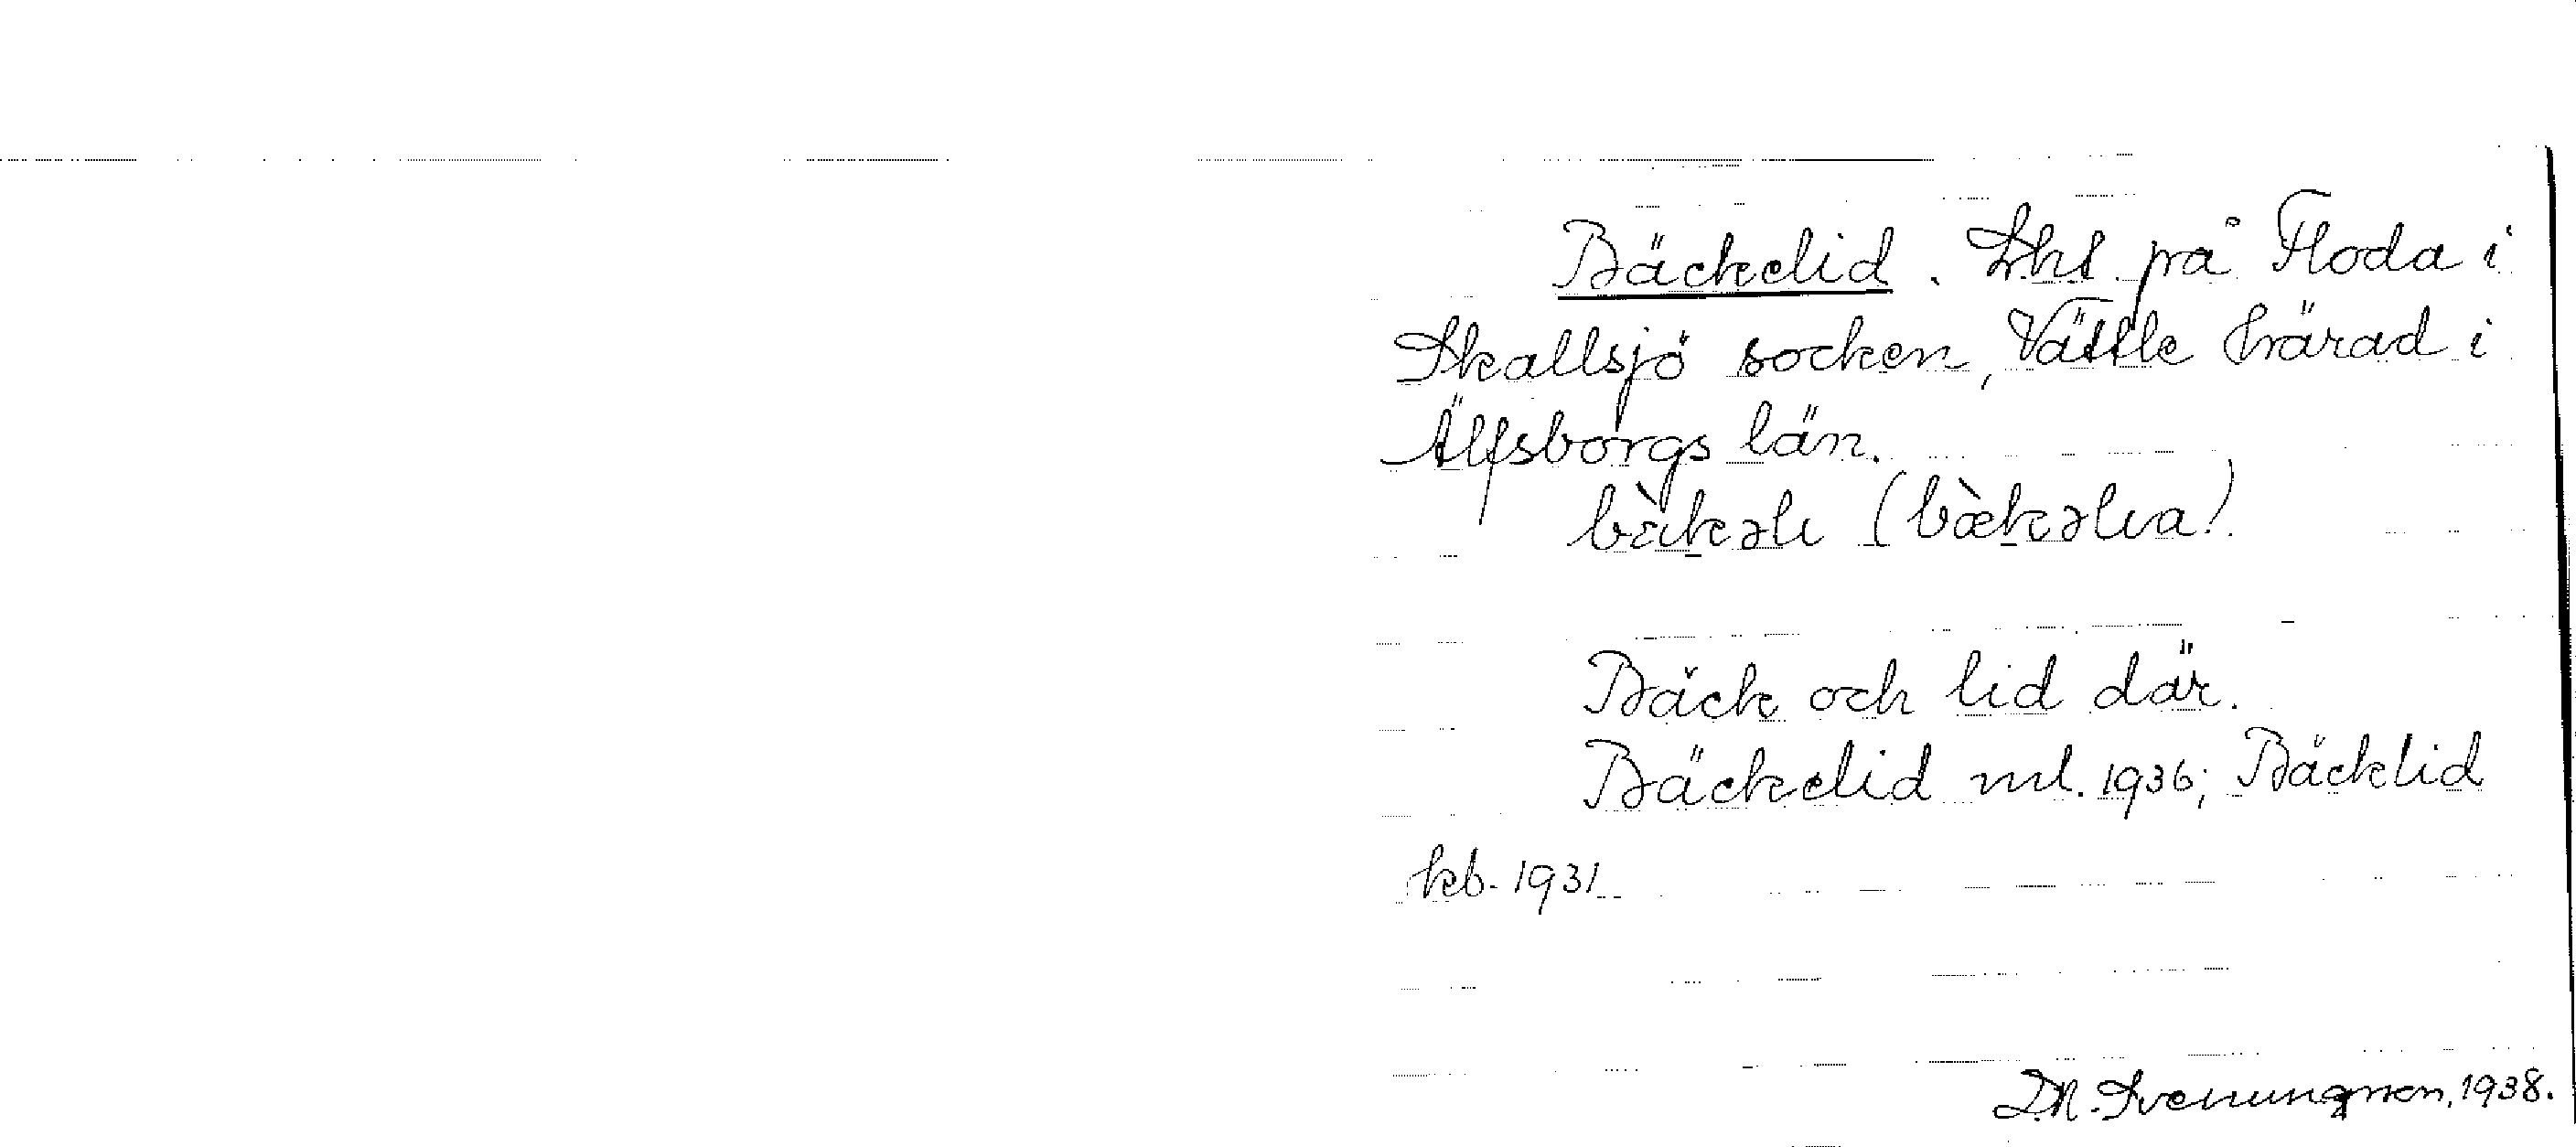 Bäckelid. Lht på Floda i
Skallsjö socken, Vättle härad i
Älfsborgs län.
bæ̀kəlı (bæ̀kəlıa).
Bäck och lid där.
Bäckelid ml. 1936; Bäcklid
kb. 1931
D.A. Svenungsson, 1938.